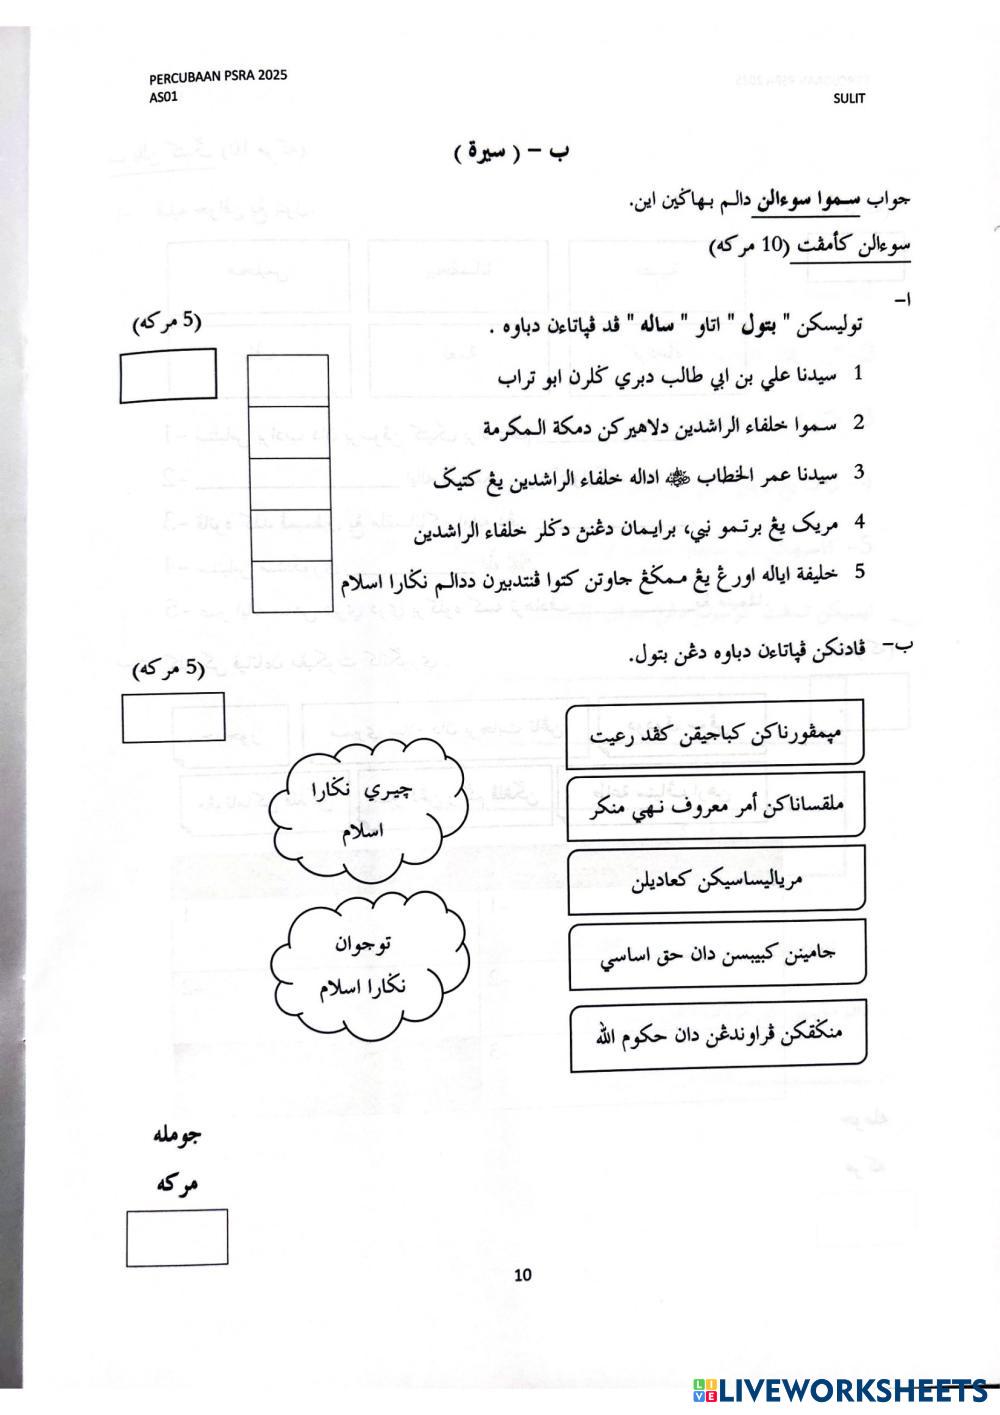 PERCUBAAN PSRA 2025
AS01
SULIT
ب - ( سيرة )
جواب سموا سوءالن دالم بهاڬين اين.
سوءالن كأمڤت (10 مركه)
ا-
توليسكن " بتول " اتاو " ساله " ڤد ڤپاتاءن دباوه .
(5 مركه)
1 سيدنا علي بن ابي طالب دبري ڬلرن ابو تراب
2 سموا خلفاء الراشدين دلاهيركن دمكة المكرمة
3 سيدنا عمر الخطاب ﷺ اداله خلفاء الراشدين يڠ كتيݢ
4 مريك يڠ برتمو نبي، برايمان دڠنڽ دڬلر خلفاء الراشدين
5 خليفة اياله اورڠ يڠ ممݢڠ جاوتن كتوا ڤنتدبيرن ددالم نݢارا اسلام
ب- ڤادنكن ڤپاتاءن دباوه دڠن بتول.
(5 مركه)
مپمڤورناكن كباجيقن كڤد رعيت
ملقساناكن أمر معروف نهي منكر
مرياليساسيكن كعاديلن
جامينن كبيبسن دان حق اساسي
منݢقكن ڤراوندڠن دان حكوم الله
چيري نݢارا
اسلام
توجوان
نݢارا اسلام
جومله
مركه
10
LIVEWORKSHEETS